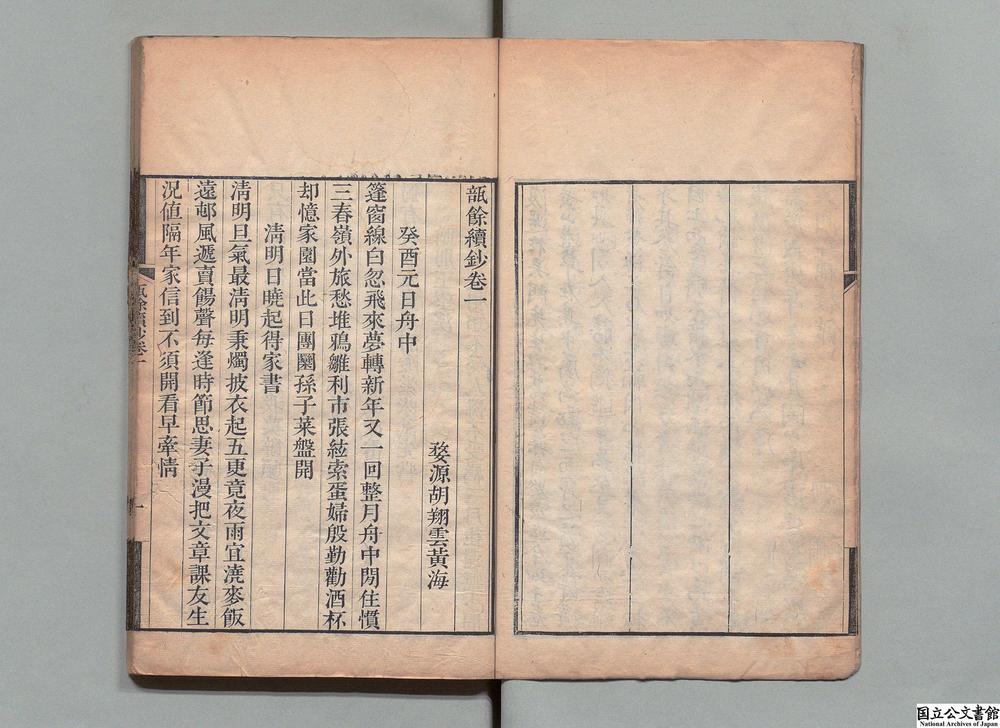 瓻餘續鈔卷一
婺源胡翔雲黃海
癸酉元日舟中
篷窗線白忽飛來夢轉新年又一回整月舟中閒住慣
三春嶺外旅愁堆鴉雛利市張絃索蛋婦殷勤勸酒杯
却憶家園當此日團圞孫子菜盤開
淸明日曉起得家書
淸明旦氣最淸明秉燭披衣起五更竟夜雨宜澆麥飯
遠邨風遞賣餳聲每逢時節思妻子漫把文章課友生
況值隔年家信到不須開看早牽情
瓻餘續鈔卷一
一
国立公文書館
National Archives of Japan